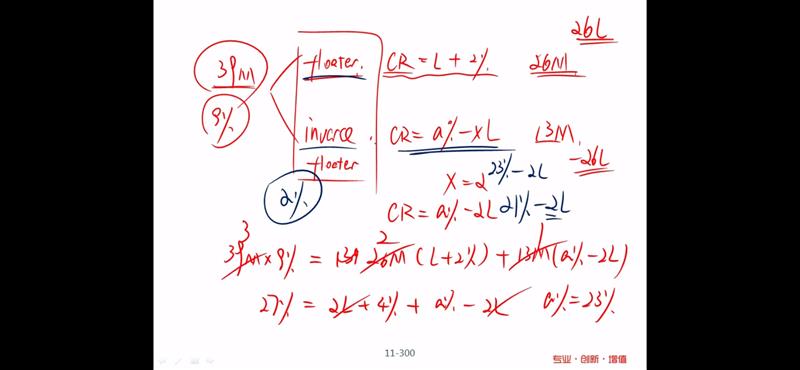 26L
39M floater. CR = L + 2% 26M
9%
inverse floater CR = a% - xL 13M
-26L
x = 2 23% - 2L
2% CR = a% - 2L 21% - 2L
3 2 1
39M × 9% = 26M (L+2%) + 13M (a% - 2L)
27% = 2L + 4% + a% - 2L a% = 23%
11-300
专业·创新·增值